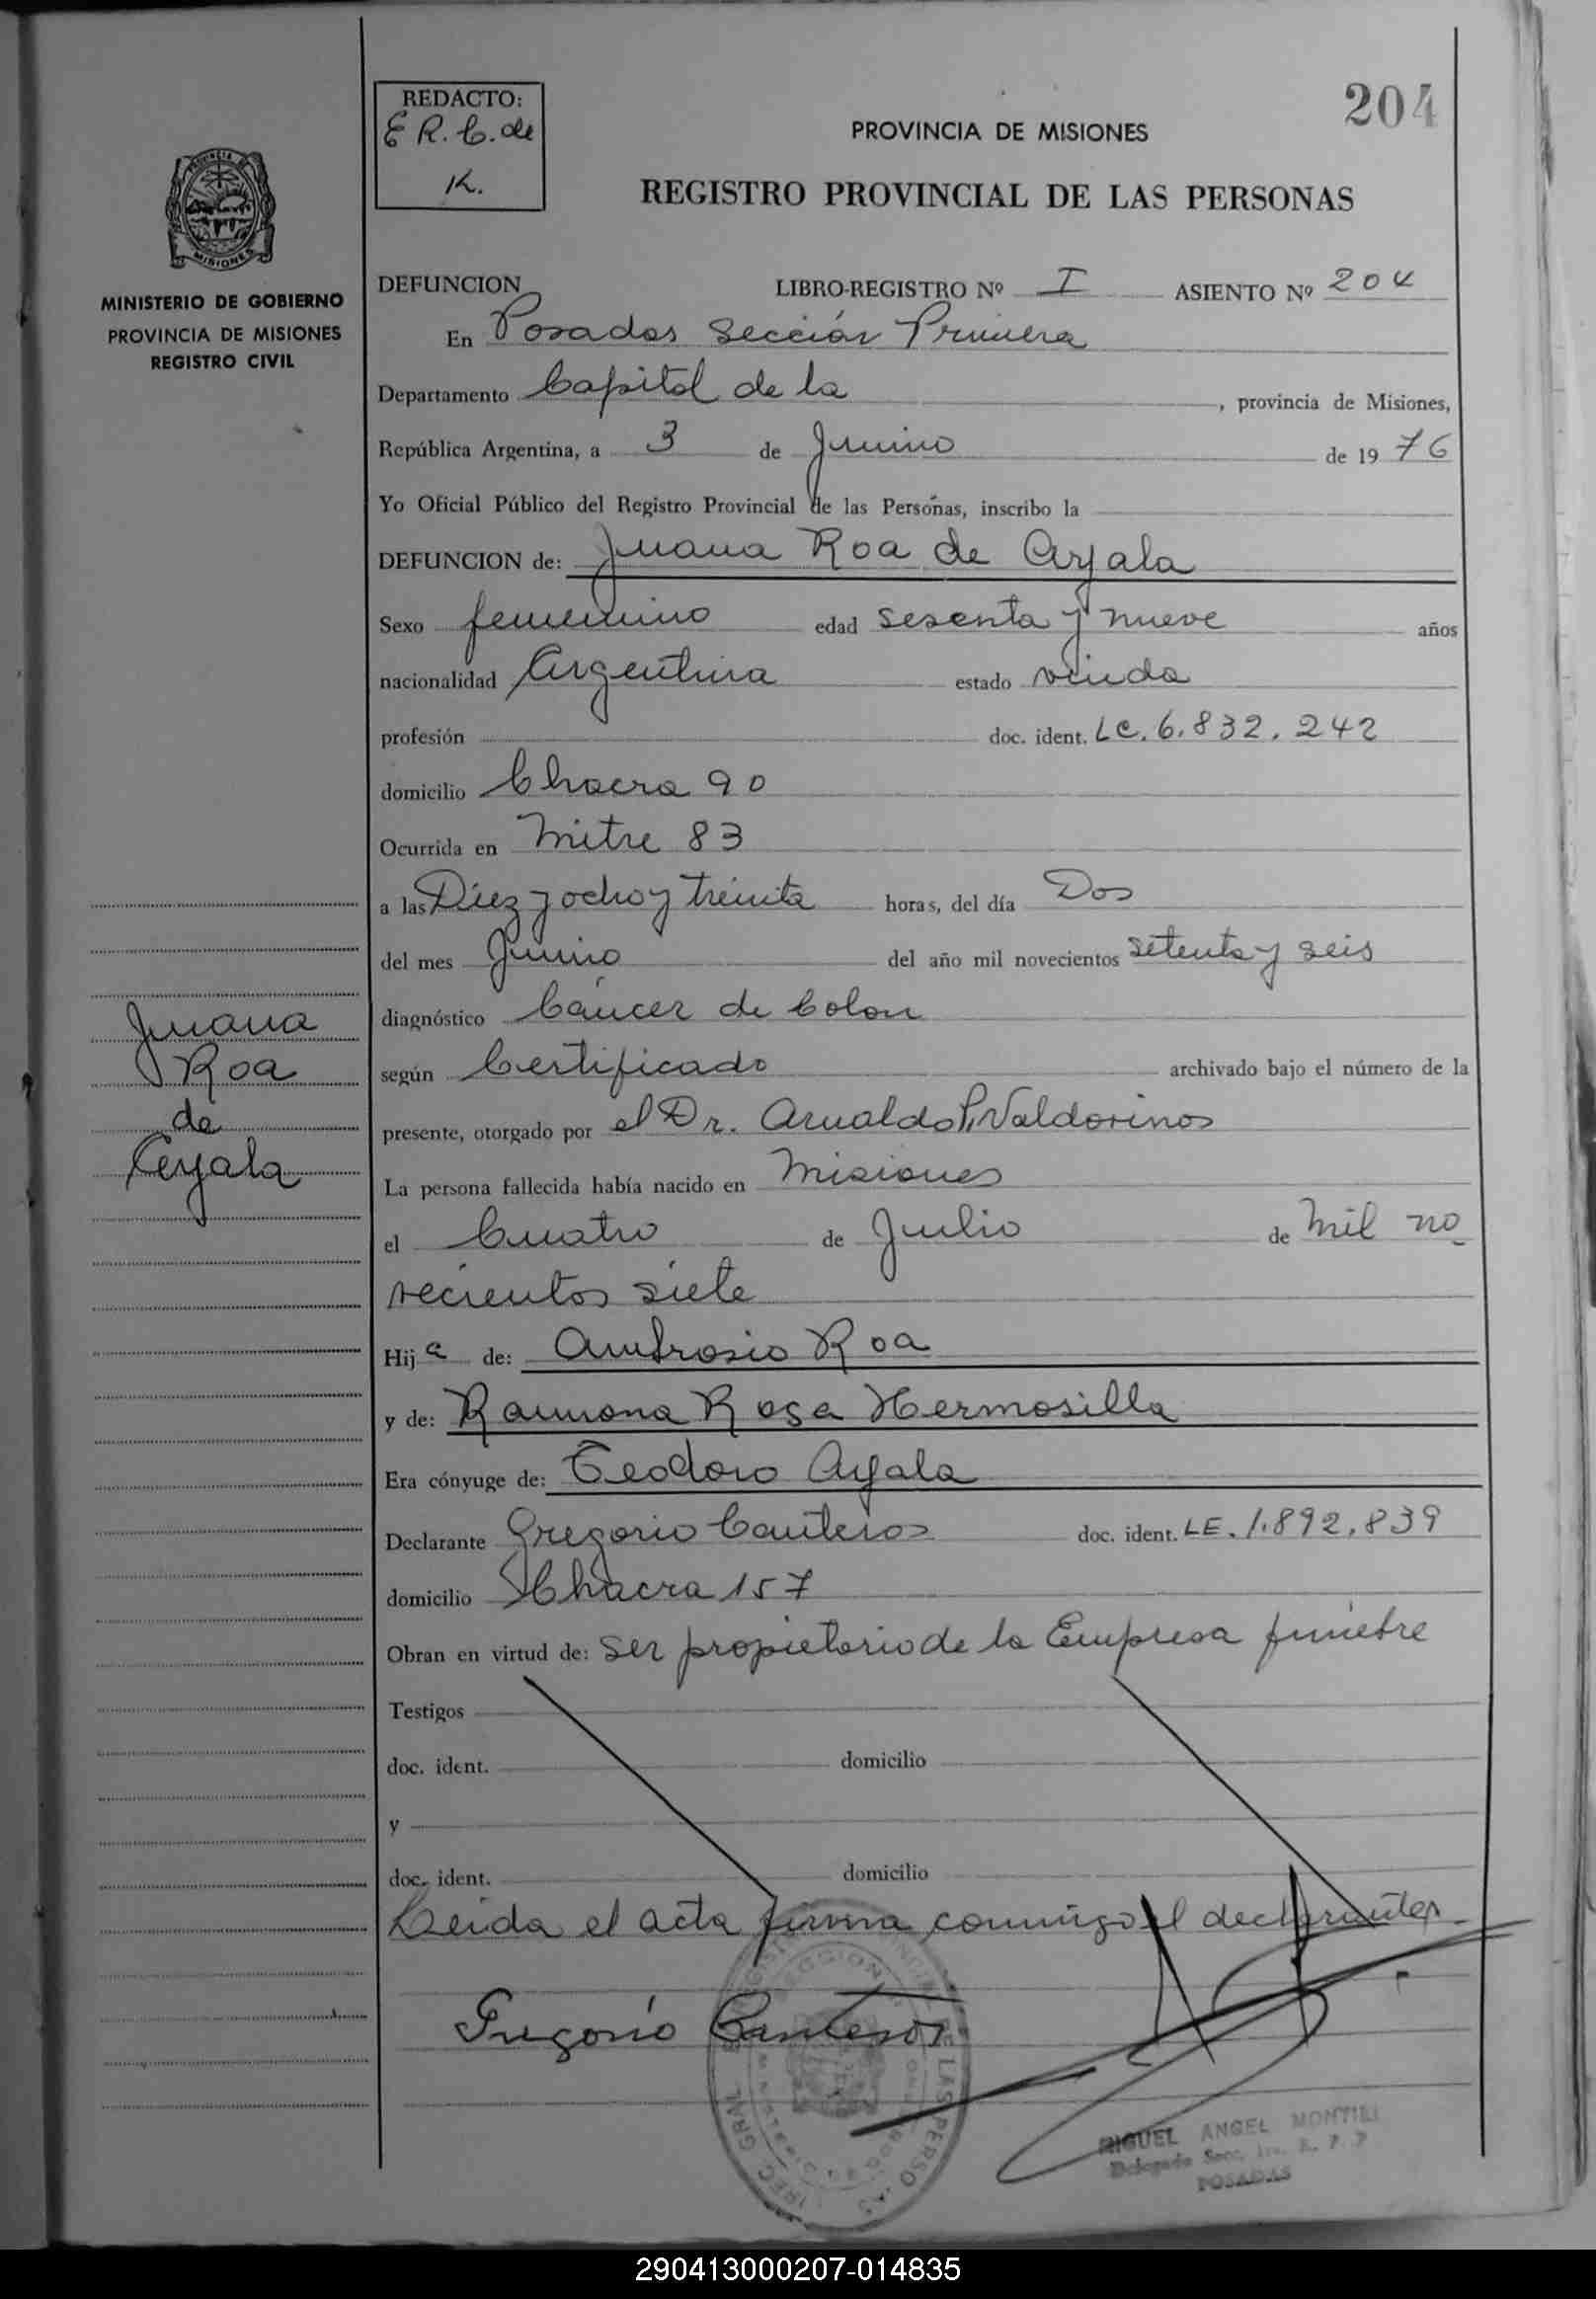 REDACTO:
E R. C. de
K.
204
PROVINCIA DE MISIONES
REGISTRO PROVINCIAL DE LAS PERSONAS
MINISTERIO DE GOBIERNO
PROVINCIA DE MISIONES
REGISTRO CIVIL
DEFUNCION LIBRO-REGISTRO Nº I ASIENTO Nº 204
En Posadas Sección Primera
Departamento Capital de la, provincia de Misiones,
República Argentina, a 3 de Junio de 1976
Yo Oficial Público del Registro Provincial de las Personas, inscribo la
DEFUNCION de: Juana Roa de Ayala
Sexo femenino edad sesenta y nueve años
nacionalidad Argentina estado viuda
profesión doc. ident. LC. 6.832.242
domicilio Chacra 90
Ocurrida en Mitre 83
a las Diez y ocho y treinta horas, del día Dos
del mes Junio del año mil novecientos setenta y seis
diagnóstico Cáncer de Colon
según Certificado archivado bajo el número de la
presente, otorgado por el Dr. Arnaldo P. Valdovinos
La persona fallecida había nacido en Misiones
el Cuatro de Julio de mil no
vecientos siete
Hija de: Ambrosio Roa
y de: Ramona Rosa Hermosilla
Era cónyuge de: Teodoro Ayala
Declarante Gregorio Canteros doc. ident. LE. 1.892.839
domicilio Chacra 157
Obran en virtud de: ser propietario de la Empresa fúnebre
Testigos
doc. ident. domicilio
y
doc. ident. domicilio
Leida el acta firma conmigo el declarante
Gregorio Canteros
Juana
Roa
de
Ayala
MIGUEL ANGEL
POSADAS
290413000207-014835